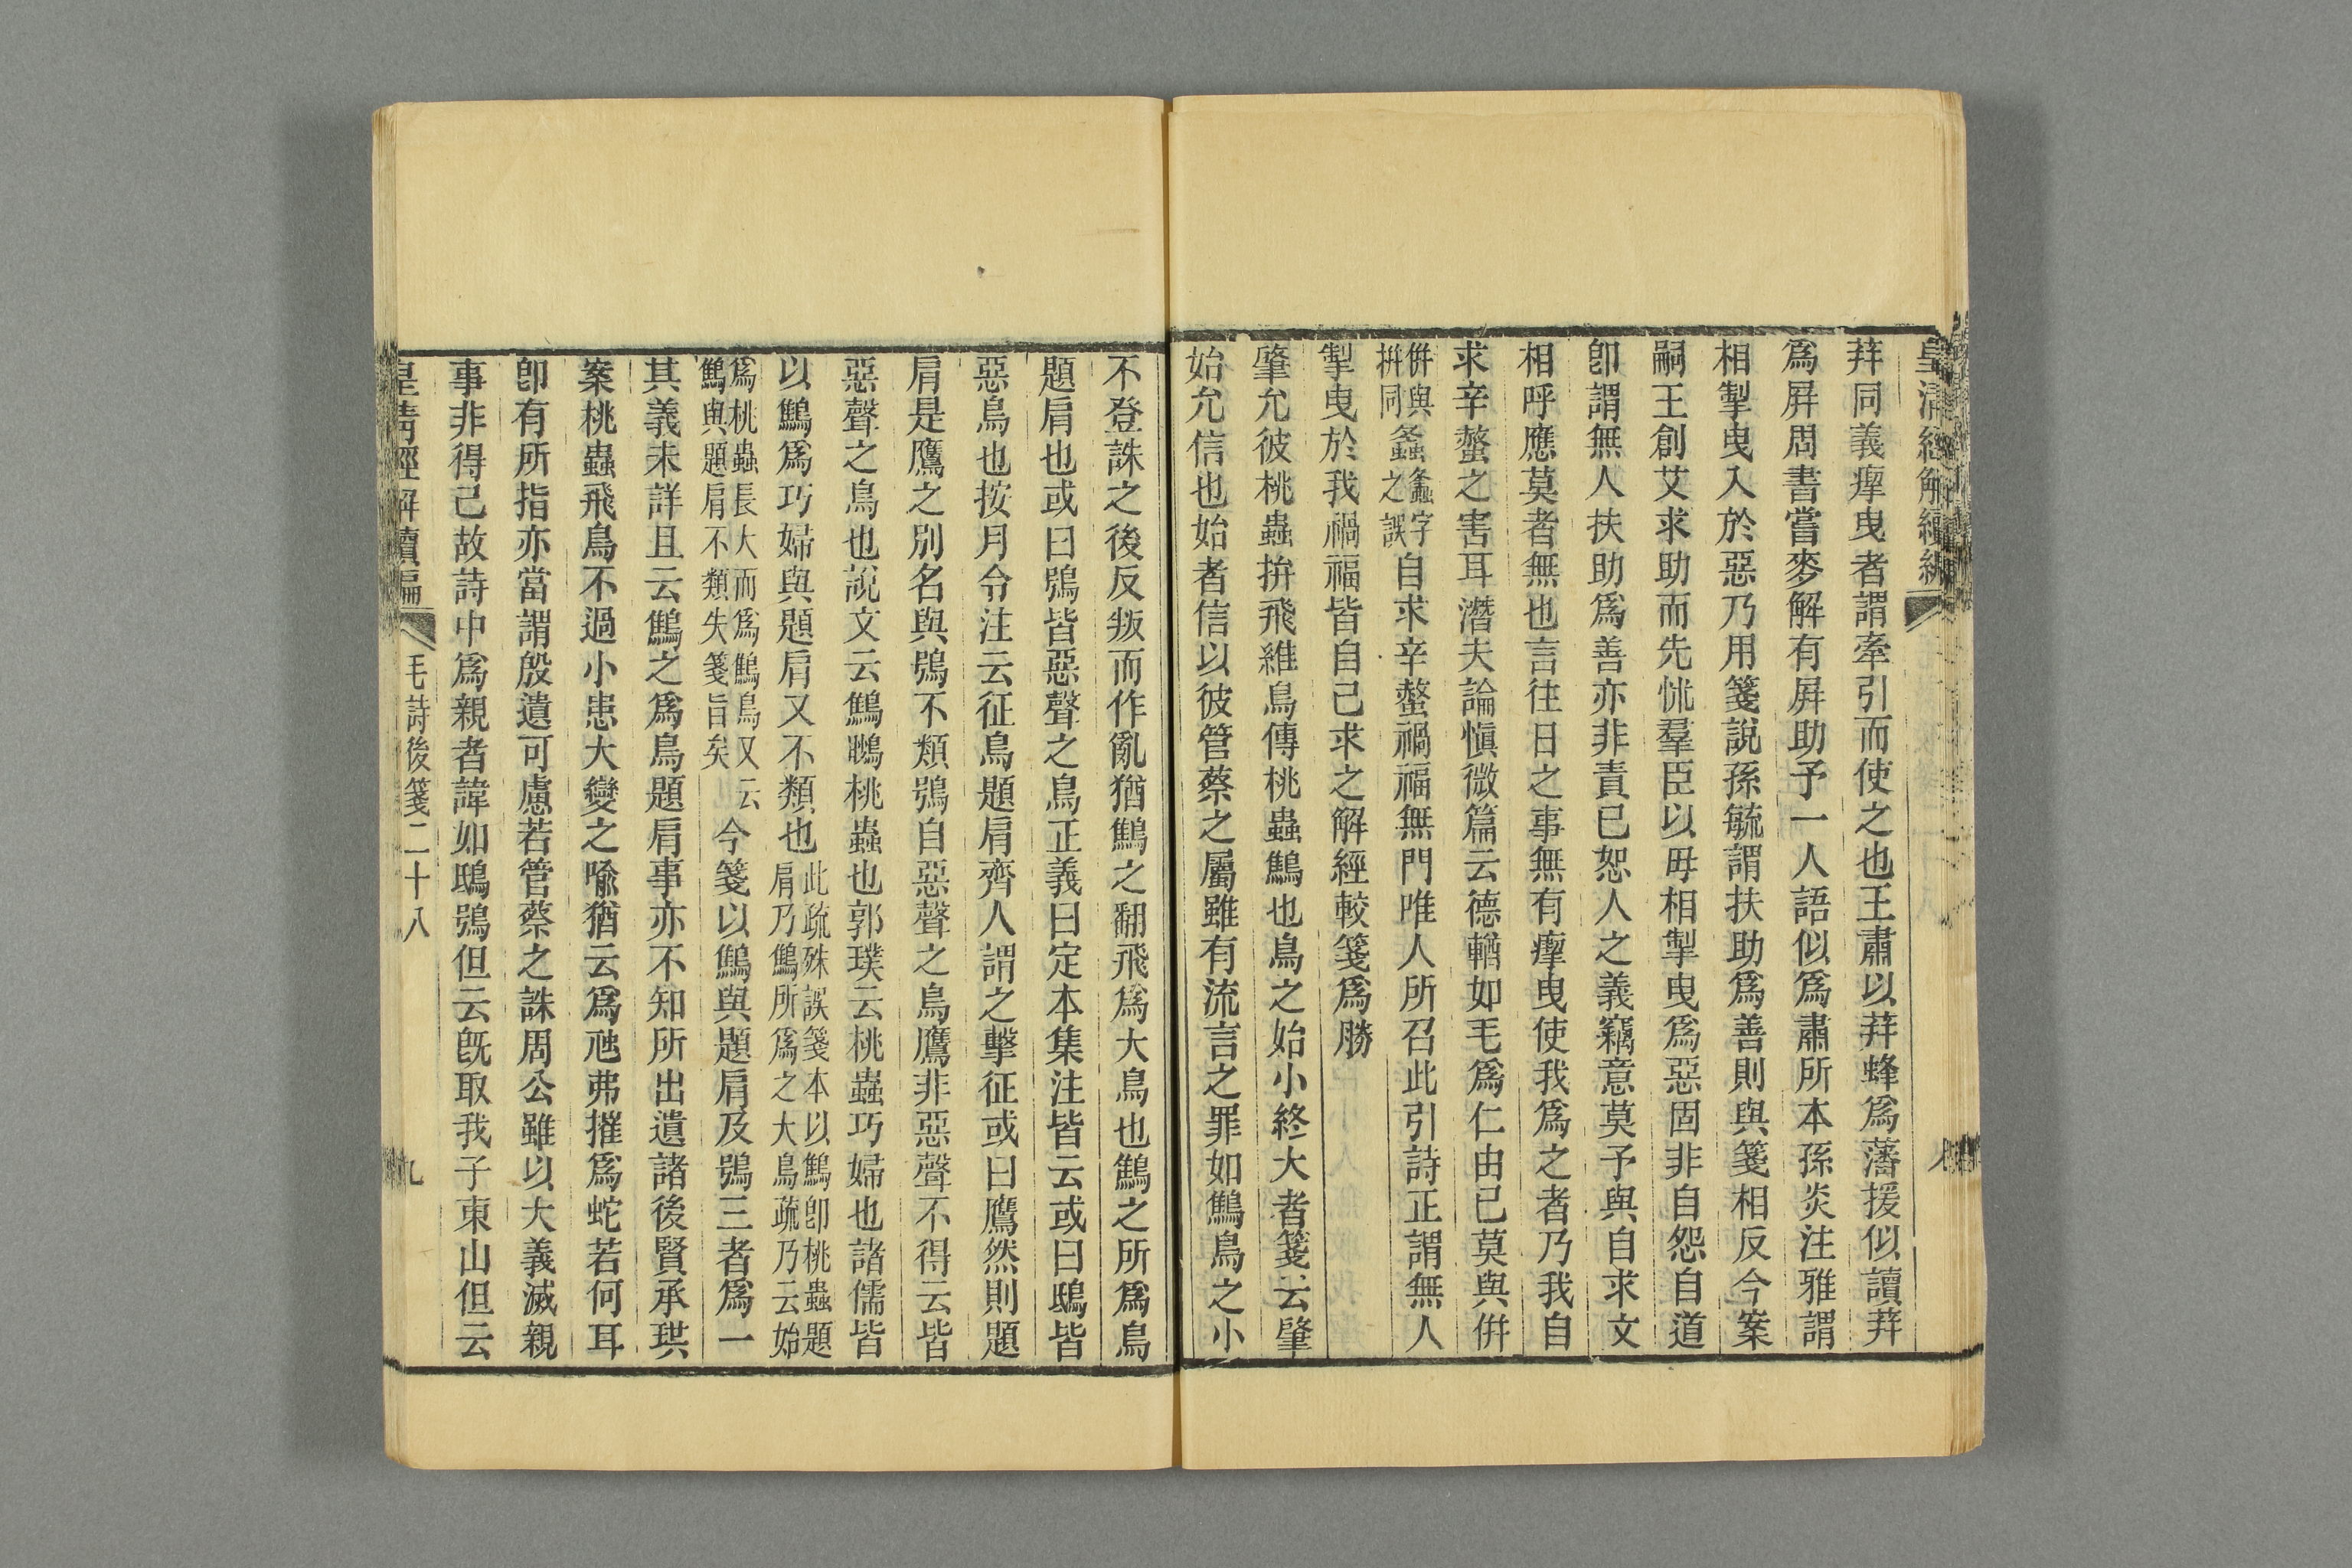 皇清經解續編
荓同義瘳曳者謂牽引而使之也王肅以荓蜂爲藩援似讀荓
爲屏周書嘗麥解有屏助予一人語似爲肅所本孫炎注雅謂
相掣曳入於惡乃用箋說孫毓謂扶助爲善則與箋相反今案
嗣王創艾求助而先恘羣臣以毋相掣曳爲惡固非自怨自道
卽謂無人扶助爲善亦非責已恕人之義竊意莫予與自求文
相呼應莫者無也言往日之事無有瘳曳使我爲之者乃我自
求辛螫之害耳潛夫論愼微篇云德輶如毛爲仁由己莫與併
併與螽螽字拚同之誤自求辛螫禍福無門唯人所召此引詩正謂無人
掣曳於我禍福皆自己求之解經較箋爲勝
肇允彼桃蟲拚飛維鳥傳桃蟲鷦也鳥之始小終大者箋云肇
始允信也始者信以彼管蔡之屬雖有流言之罪如鷦鳥之小
不登誅之後反叛而作亂猶鷦之翻飛爲大鳥也鷦之所爲鳥
題肩也或曰鴞皆惡聲之鳥正義曰定本集注皆云或曰鴟皆
惡鳥也按月令注云征鳥題肩齊人謂之擊征或曰鷹然則題
肩是鷹之別名與鴞不類鴞自惡聲之鳥鷹非惡聲不得云皆
惡聲之鳥也說文云鷦䳟桃蟲也郭璞云桃蟲巧婦也諸儒皆
以鷦爲巧婦與題肩又不類也此疏殊誤箋本以鷦卽桃蟲題肩乃鷦所爲之大鳥疏乃云始
爲桃蟲長大而爲鷦鳥又云鷦與題肩不類失箋旨矣今箋以鷦與題肩及鴞三者爲一
其義未詳且云鷦之爲鳥題肩事亦不知所出遺諸後賢承珙
案桃蟲飛鳥不過小患大變之喩猶云爲虺弗摧爲蛇若何耳
卽有所指亦當謂殷遺可慮若管蔡之誅周公雖以大義滅親
事非得已故詩中爲親者諱如鴟鴞但云旣取我子東山但云
皇淸經解續編 毛詩後箋二十八 九